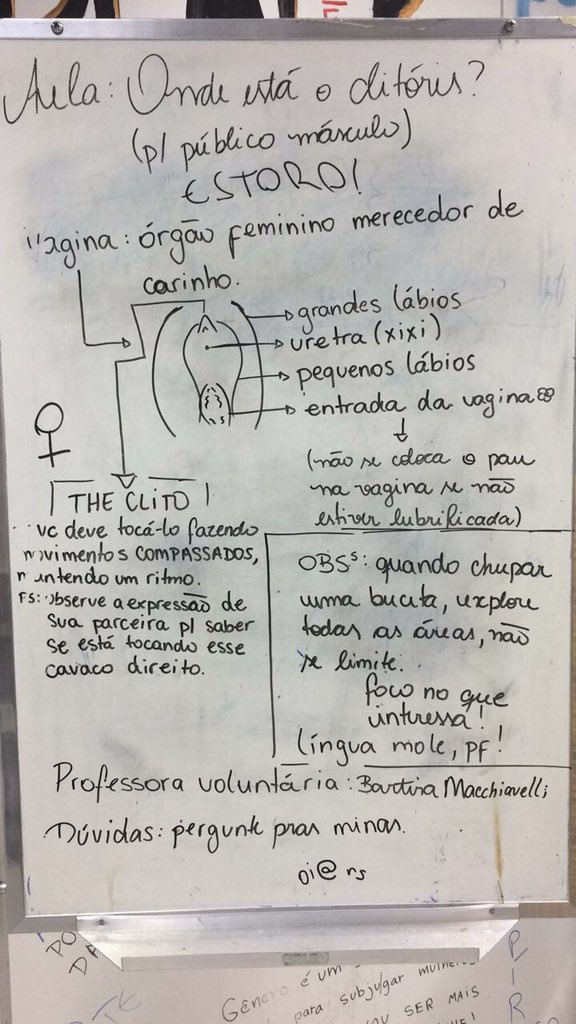 Aula: Onde está o clitóris?
(p/ público másculo)
ESTORO!
Vagina: órgão feminino merecedor de
carinho.
grandes lábios
uretra (xixi)
pequenos lábios
entrada da vagina
(não se coloca o pau
na vagina se não
estiver lubrificada)
♀
THE CLITO
vc deve tocá-lo fazendo
movimentos COMPASSADOS,
mantendo um ritmo.
PS: Observe a expressão de
sua parceira p/ saber
se está tocando esse
cavaco direito.
OBSs: quando chupar
uma buceta, explore
todas as áreas, não
se limite.
foco no que
interessa!
língua mole, pf!
Professora voluntária: Macchiavelli
Dúvidas: pergunte pras minas.
oi@ rs
Gênero é um
para subjulgar
SER MAIS